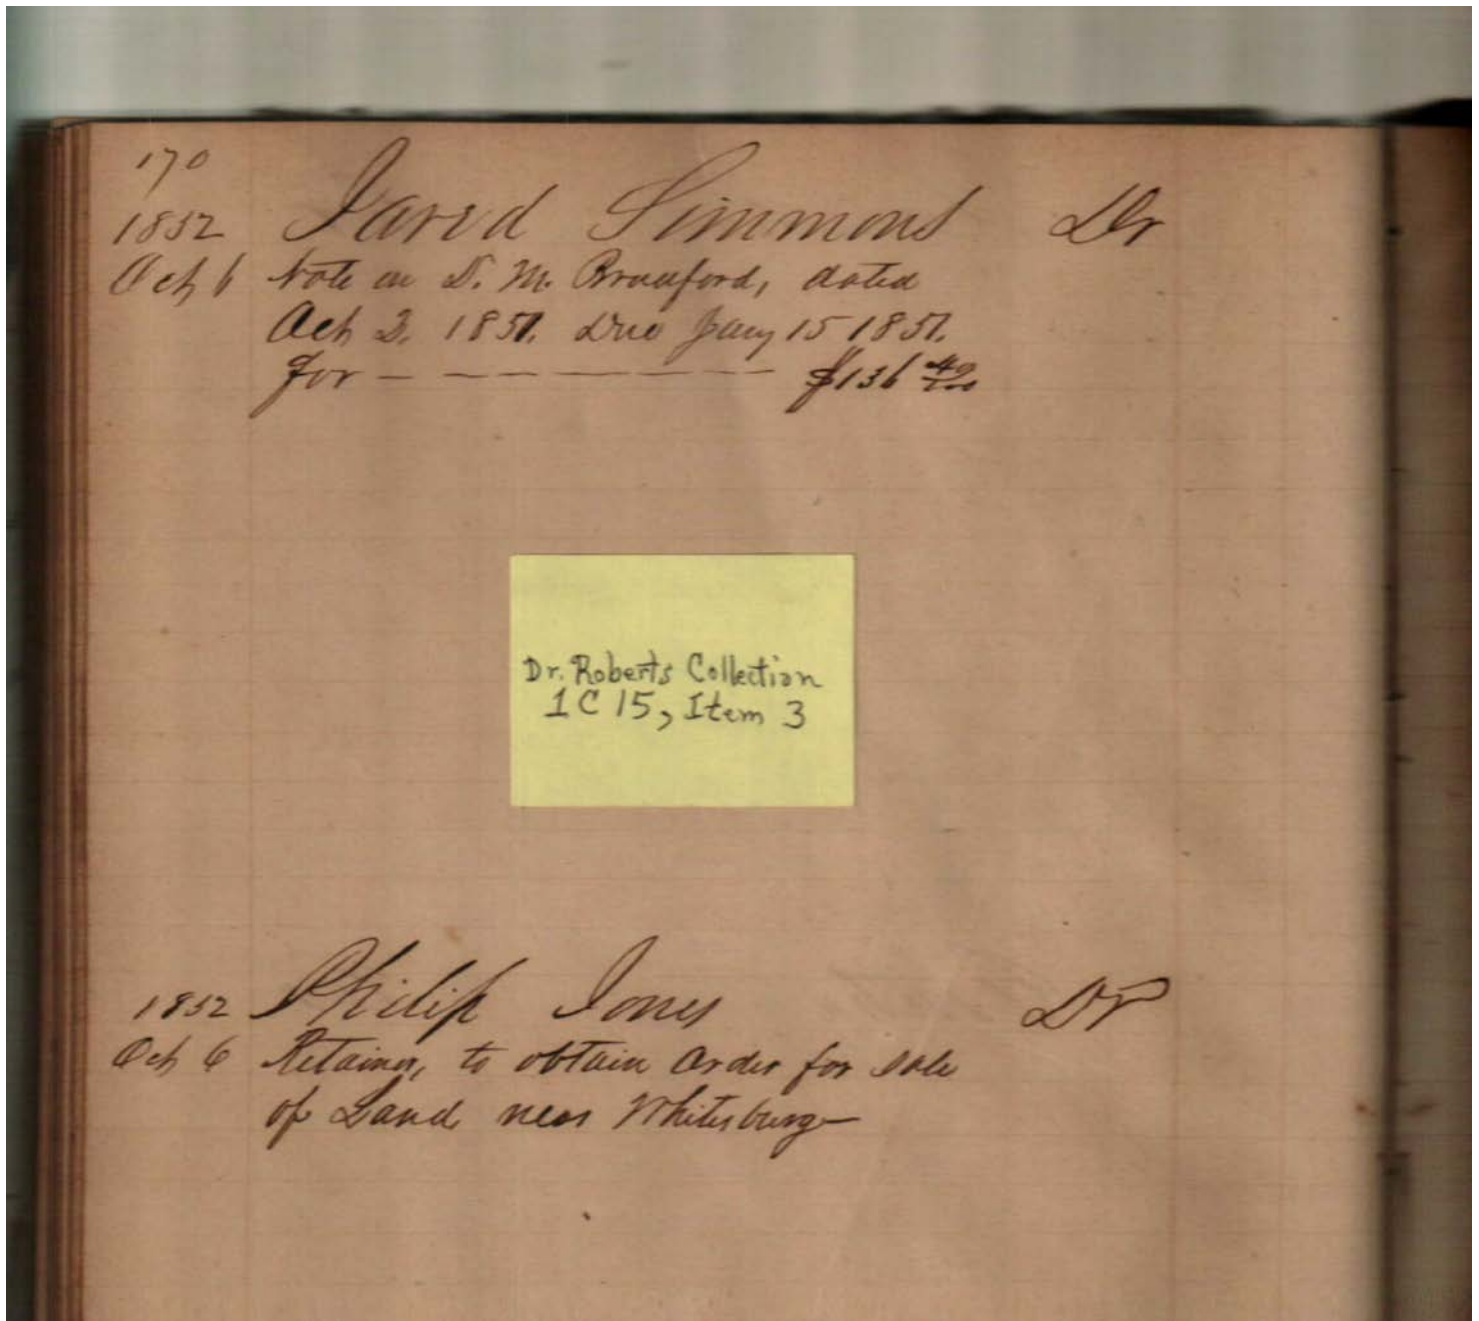 170
1852 Jared Simmons Dr
Oct 6 Note on D. M. Bradford, dated
Oct 2. 1851. Due Jany 15 1851.
for — — — — — — — $136 40/100
Dr. Roberts Collection
1 C 15, Item 3
1852 Philip Jones Dr
Oct 6 Retainer, to obtain order for sale
of Land near Whitesburg